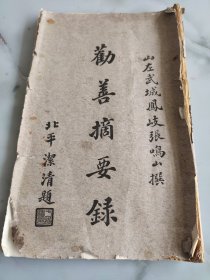 山左武城鳳岐張鳴山撰
勸善摘要録
北平潔清題